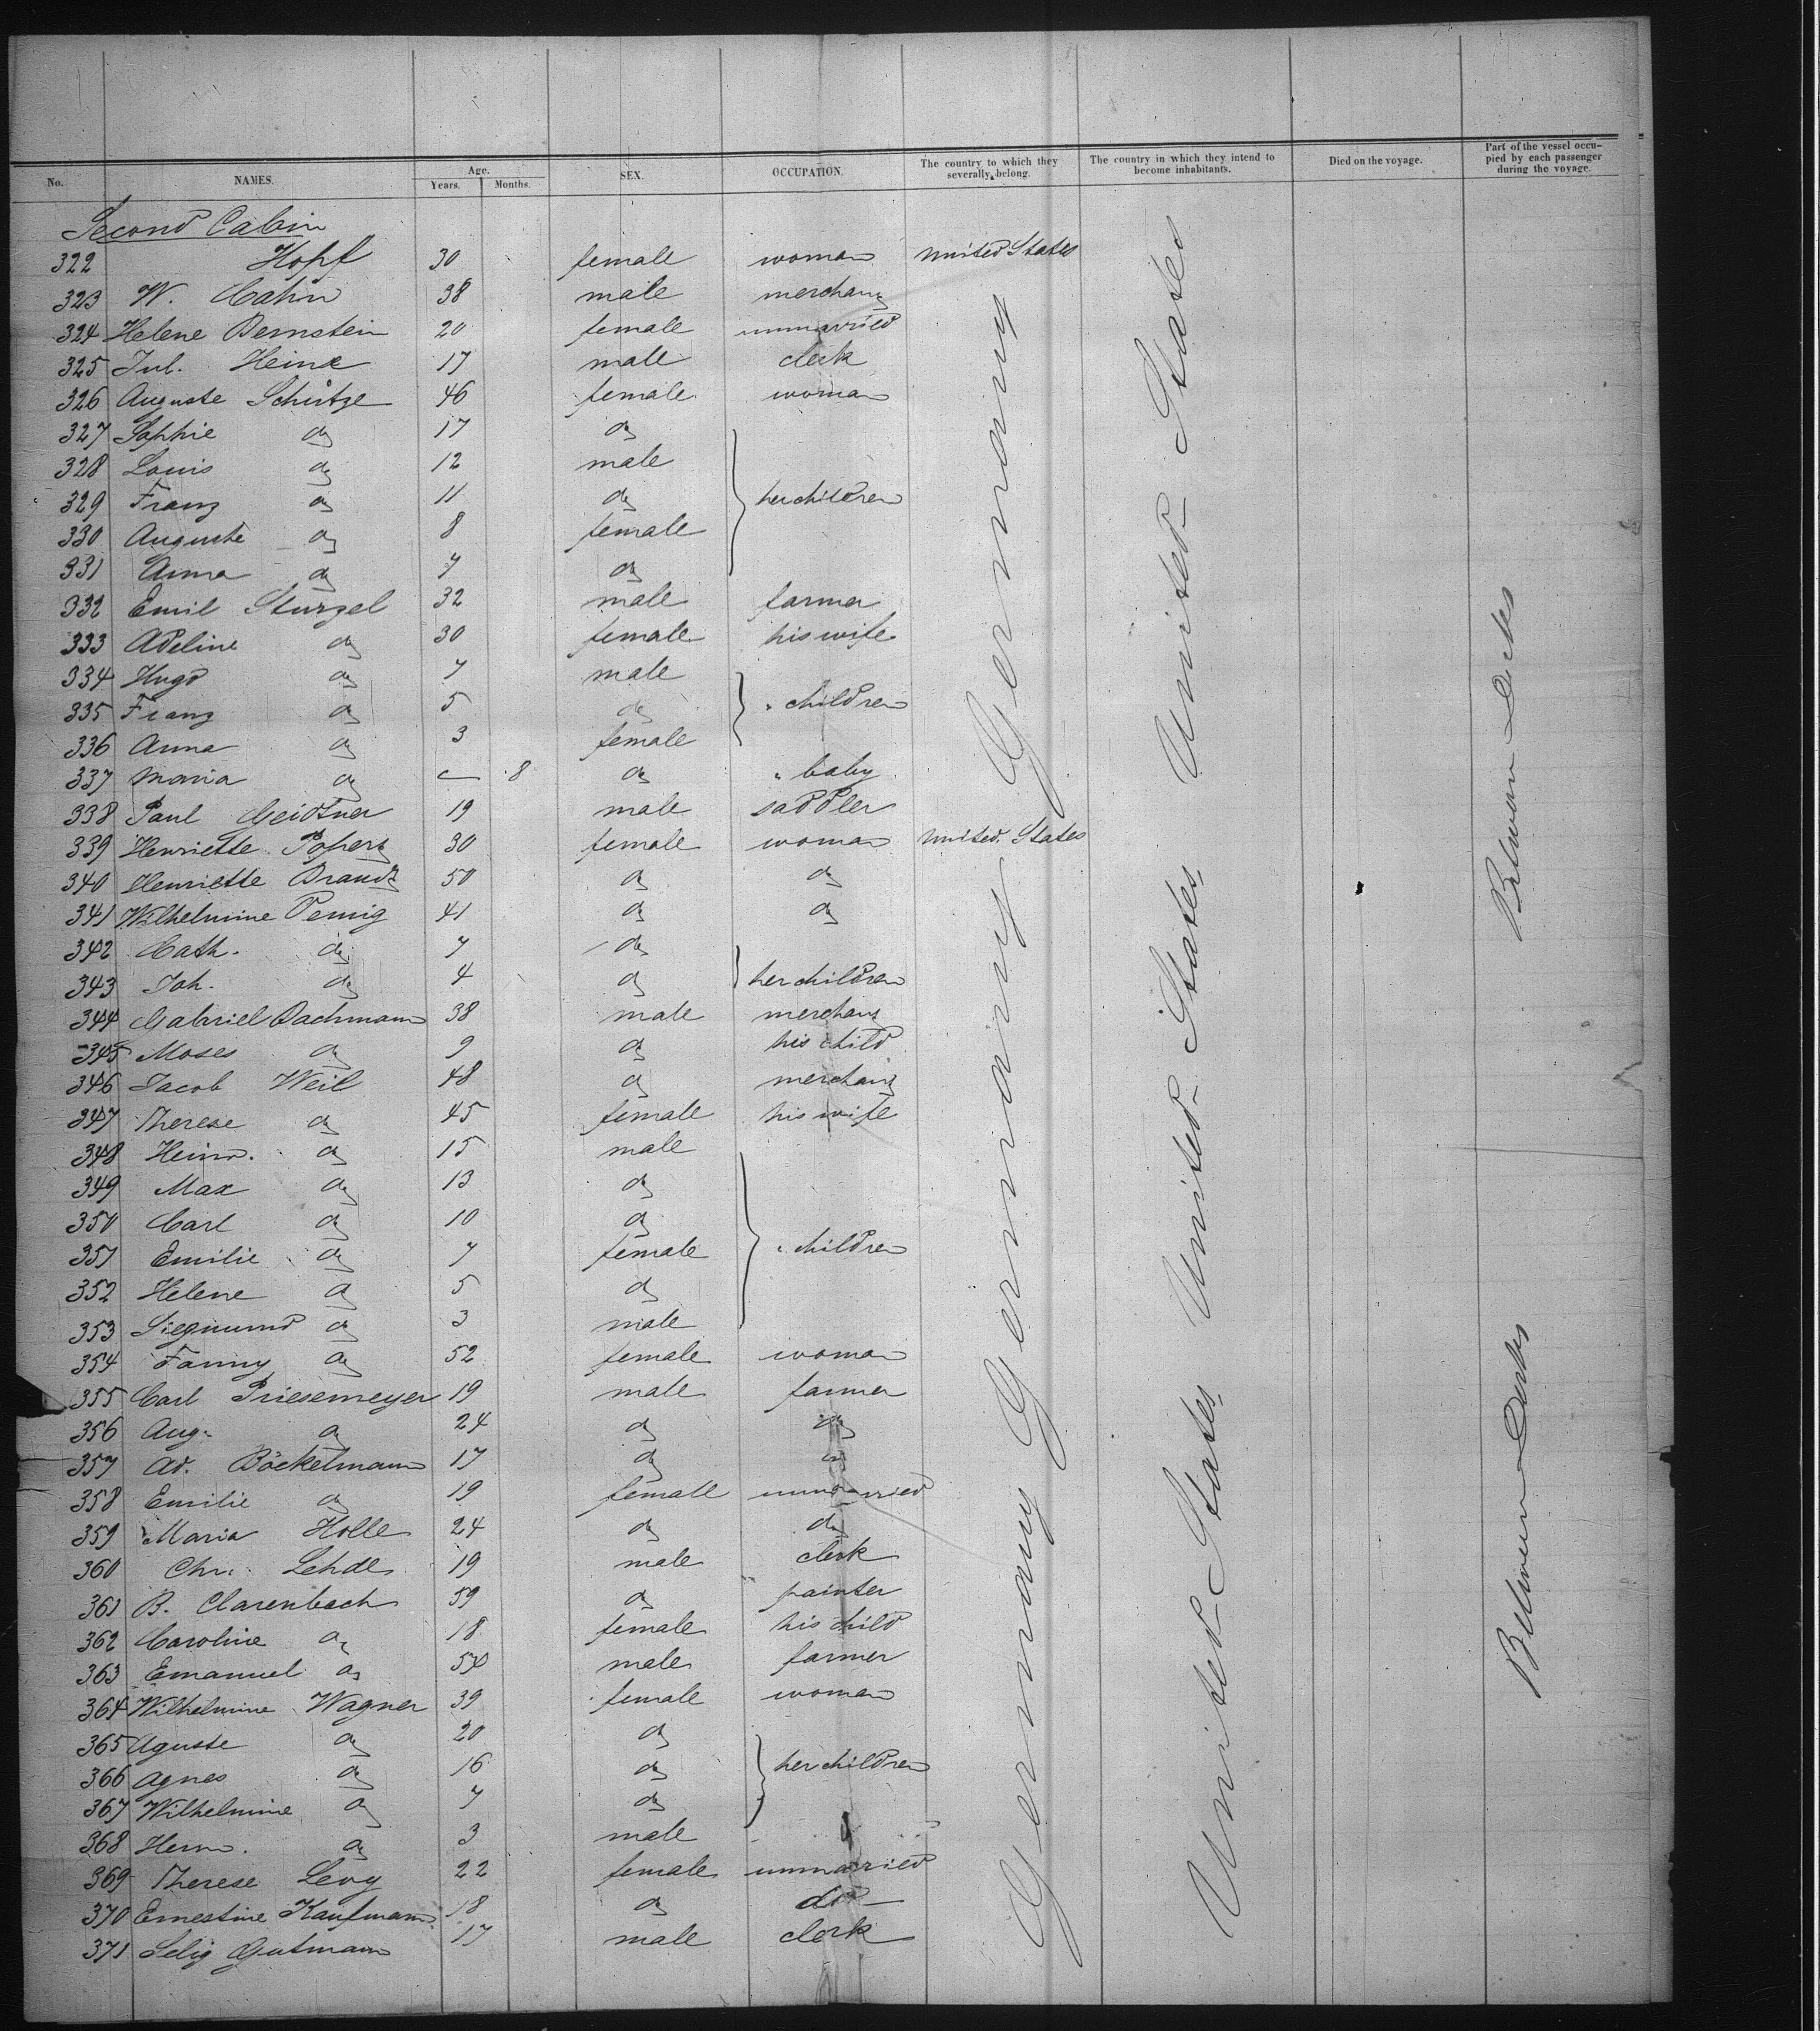 No. NAMES. Age. Years. Months. SEX. OCCUPATION. The country to which they severally belong. The country in which they intend to become inhabitants. Died on the voyage. Part of the vessel occupied by each passenger during the voyage.
Second Cabin
322 Hopf 30 female woman United States
323 W. Cahn 38 male merchant
324 Helene Bernstein 20 female unmarried
325 Jul. Heine 17 male clerk
326 Auguste Schütze 46 female woman
327 Sophie do 17 do
328 Louis do 12 male
329 Franz do 11 do her children
330 Auguste do 8 female
331 Anna do 7 do
332 Emil Sturzel 32 male farmer
333 Adeline do 30 female his wife
334 Hugo do 7 male
335 Franz do 5 do " children
336 Anna do 3 female
337 Maria do — 8 do " baby
338 Paul Geidtner 19 male saddler
339 Henriette Popert 30 female woman United States
340 Henriette Brandt 50 do do
341 Wilhelmine Pennig 41 do do
342 Cath. do 7 do
343 Joh. do 4 do her children
344 Gabriel Bachmann 38 male merchant
345 Moses do 9 do his child
346 Jacob Weil 48 do merchant
347 Therese do 45 female his wife
348 Heinr. do 15 male
349 Max do 13 do
350 Carl do 10 do
351 Emilie do 7 female " children
352 Helene do 5 do
353 Siegmund do 3 male
354 Fanny do 52 female woman
355 Carl Priesemeyer 19 male farmer
356 Aug. do 24 do do
357 Ad. Böckelmann 17 do do
358 Emilie do 19 female unmarried
359 Maria Holle 24 do do
360 Chr. Lehde 19 male clerk
361 B. Clarenbach 59 do painter
362 Caroline do 18 female his child
363 Emanuel do 54 male farmer
364 Wilhelmine Wagner 39 female woman
365 Aguste do 20 do
366 Agnes do 16 do her children
367 Wilhelmine do 7 do
368 Herm. do 3 male
369 Therese Levy 22 female unmarried
370 Ernestine Kaufmann 18 do do
371 Selig Gutmann 17 male clerk
Germany Germany Germany
United States United States United States
Between Decks Between Decks